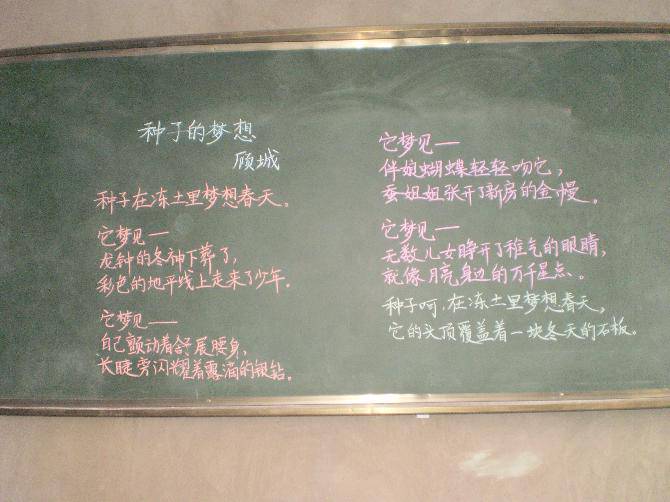 种子的梦想
顾城
种子在冻土里梦想春天。
它梦见—
龙钟的冬神下葬了，
彩色的地平线上走来了少年。
它梦见——
自己颤动着舒展腰身，
长睫旁闪耀着露滴的银钻。
它梦见—
伴娘蝴蝶轻轻吻它，
蚕姐姐张开了新房的金幔。
它梦见—
无数儿女睁开了稚气的眼睛，
就像月亮身边的万千星点。
种子呵，在冻土里梦想春天，
它的头顶覆盖着一块冬天的石板。